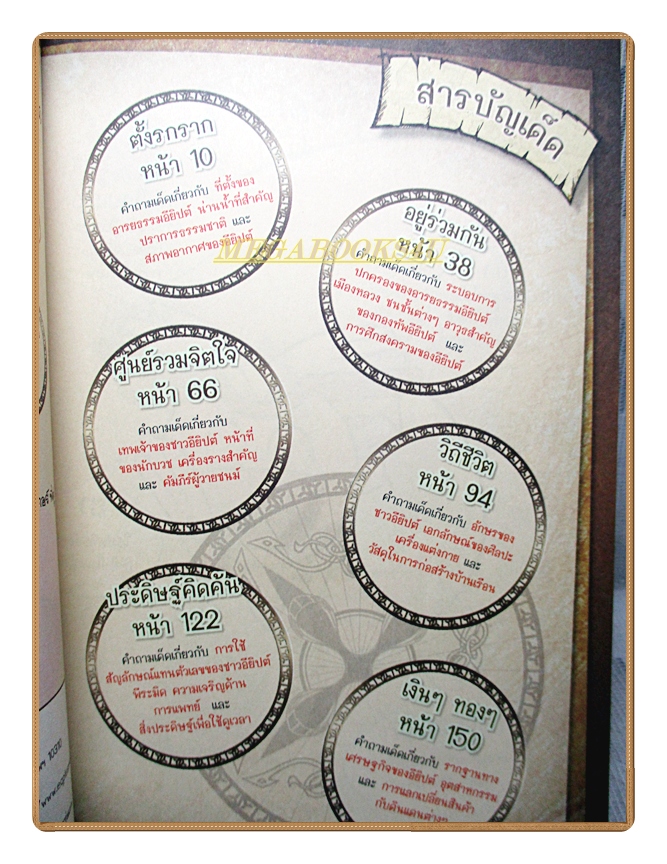 สารบัญเด็ด
ตั้งรกราก
หน้า 10
คำถามเด็ดเกี่ยวกับ ที่ตั้งของ
อารยธรรมอียิปต์ น่านน้ำที่สำคัญ
ปราการธรรมชาติ และ
สภาพอากาศของอียิปต์
อยู่ร่วมกัน
หน้า 38
คำถามเด็ดเกี่ยวกับ ระบอบการ
ปกครองของอารยธรรมอียิปต์
เมืองหลวง ชนชั้นต่างๆ อาวุธสำคัญ
ของกองทัพอียิปต์ และ
การศึกสงครามของอียิปต์
ศูนย์รวมจิตใจ
หน้า 66
คำถามเด็ดเกี่ยวกับ
เทพเจ้าของชาวอียิปต์ หน้าที่
ของนักบวช เครื่องรางสำคัญ
และ คัมภีร์ผู้วายชนม์
วิถีชีวิต
หน้า 94
คำถามเด็ดเกี่ยวกับ อักษรของ
ชาวอียิปต์ เอกลักษณ์ของศิลปะ
เครื่องแต่งกาย และ
วัสดุในการก่อสร้างบ้านเรือน
ประดิษฐ์คิดค้น
หน้า 122
คำถามเด็ดเกี่ยวกับ การใช้
สัญลักษณ์แทนตัวเลขของชาวอียิปต์
พีระมิด ความเจริญด้าน
การแพทย์ และ
สิ่งประดิษฐ์เพื่อใช้ดูเวลา
เงินๆ ทองๆ
หน้า 150
คำถามเด็ดเกี่ยวกับ รากฐานทาง
เศรษฐกิจของอียิปต์ อุตสาหกรรม
และ การแลกเปลี่ยนสินค้า
กับดินแดนต่างๆ